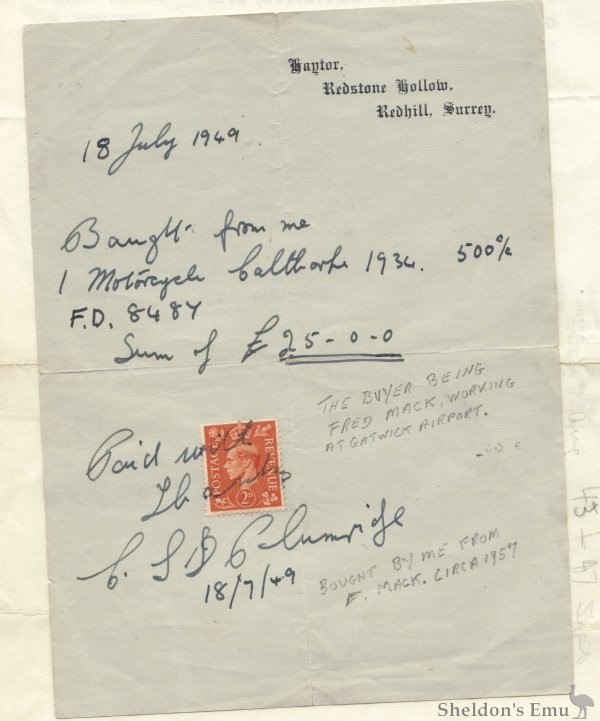 Haytor,
Redstone Hollow,
Redhill, Surrey.
18 July 1949
Bought from me
1 Motorcycle Calthorpe 1934. 500%
F.D. 8487
Sum of £25-0-0
THE BUYER BEING
FRED MACK, WORKING
AT GATWICK AIRPORT.
Paid with
Thanks
POSTAGE
REVENUE
2D
C. S D Plumridge
18/7/49
BOUGHT BY ME FROM
F. MACK. CIRCA 1957
Sheldon's Emu